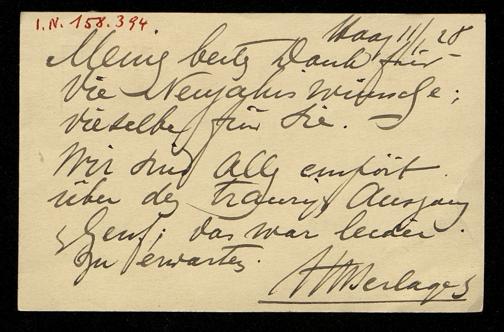 I.N. 158.394
Haag 11/1 28
Meine beste Dank für
die Neujahrswünsche;
dieselbe für Sie.
Wir sind Alle empört
über den traurigen Ausgang
Genf; das war leider
zu erwarten.
HPBerlage